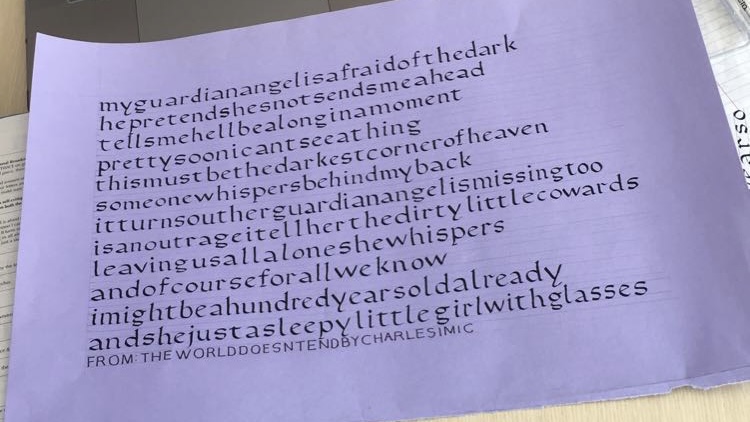 myguardianangelisafraidofthedark
hepretendshesnotsendsmeahead
tellsmehellbealonginamoment
prettysoonicantseeathing
thismustbethedarkestcornerofheaven
someonewhispersbehindmyback
itturnsoutherguardianangelismissingtoo
isanoutrageitellherthedirtylittlecowards
leavingusallaloneshewhispers
andofcourseforallweknow
imightbeahundredyearsoldalready
andshejustasleepylittlegirlwithglasses
FROM:THEWORLDDOESNTENDBYCHARLESIMIC